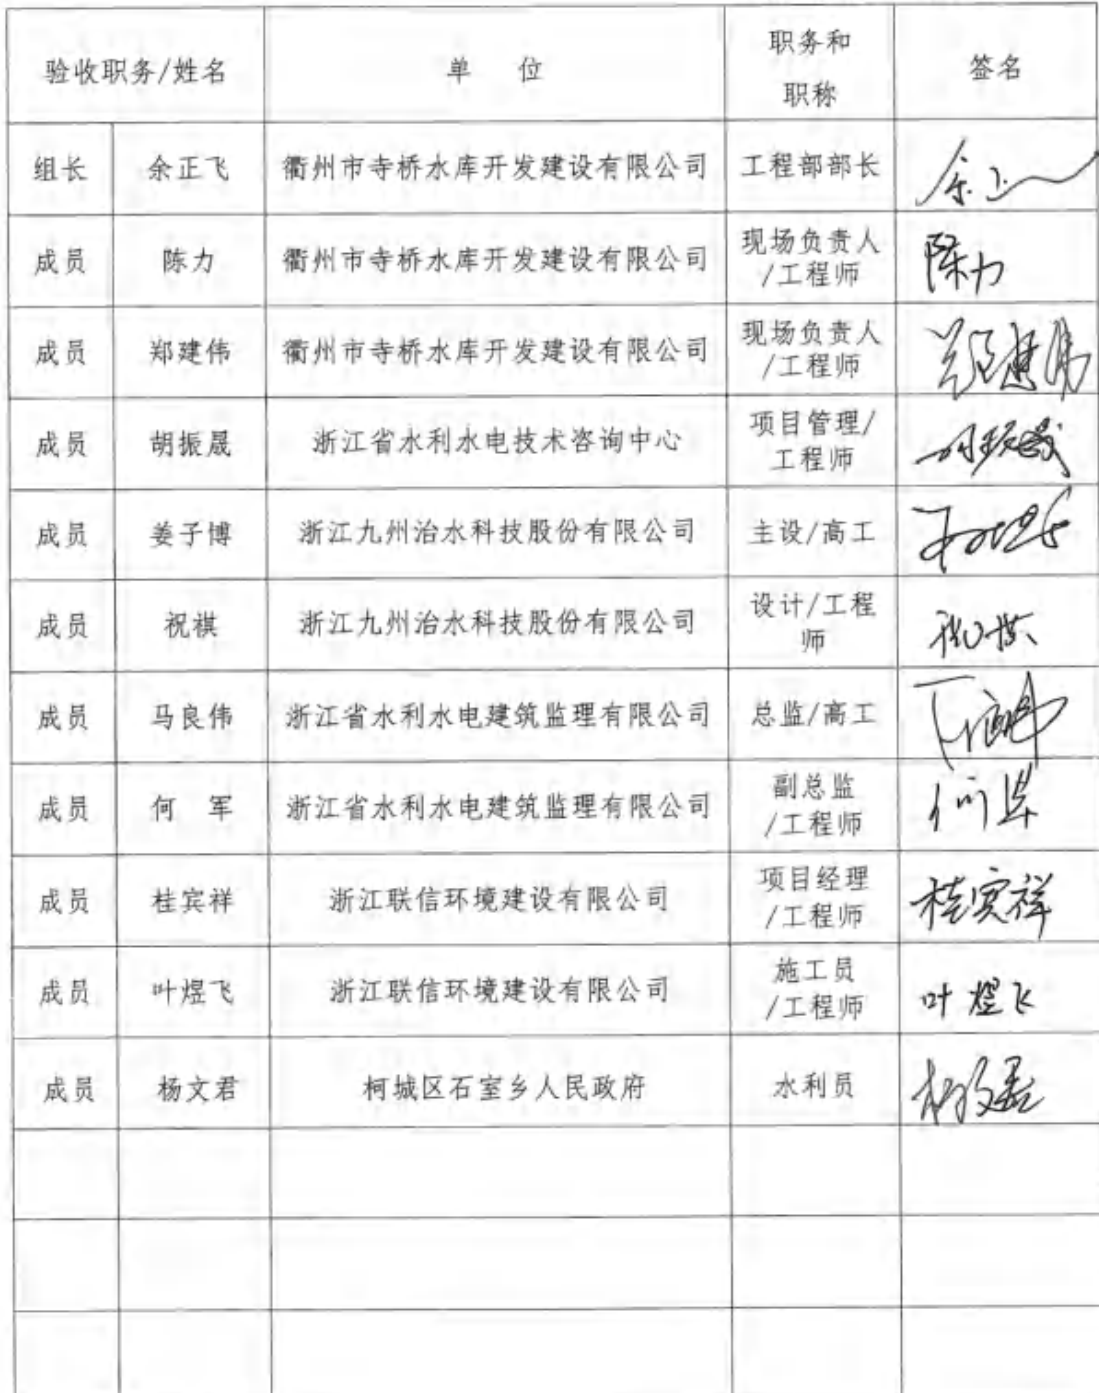 验收职务/姓名 单 位 职务和 签名
职称
组长 余正飞 衢州市寺桥水库开发建设有限公司 工程部部长
成员 陈力 衢州市寺桥水库开发建设有限公司 现场负责人 陈力
/工程师
成员 郑建伟 衢州市寺桥水库开发建设有限公司 现场负责人 郑建伟
/工程师
成员 胡振晟 浙江省水利水电技术咨询中心 项目管理/ 胡振晟
工程师
成员 姜子博 浙江九州治水科技股份有限公司 主设/高工
成员 祝祺 浙江九州治水科技股份有限公司 设计/工程 祝祺
师
成员 马良伟 浙江省水利水电建筑监理有限公司 总监/高工
成员 何 军 浙江省水利水电建筑监理有限公司 副总监 何军
/工程师
成员 桂宾祥 浙江联信环境建设有限公司 项目经理 桂宾祥
/工程师
成员 叶煜飞 浙江联信环境建设有限公司 施工员 叶煜飞
/工程师
成员 杨文君 柯城区石室乡人民政府 水利员 杨文君